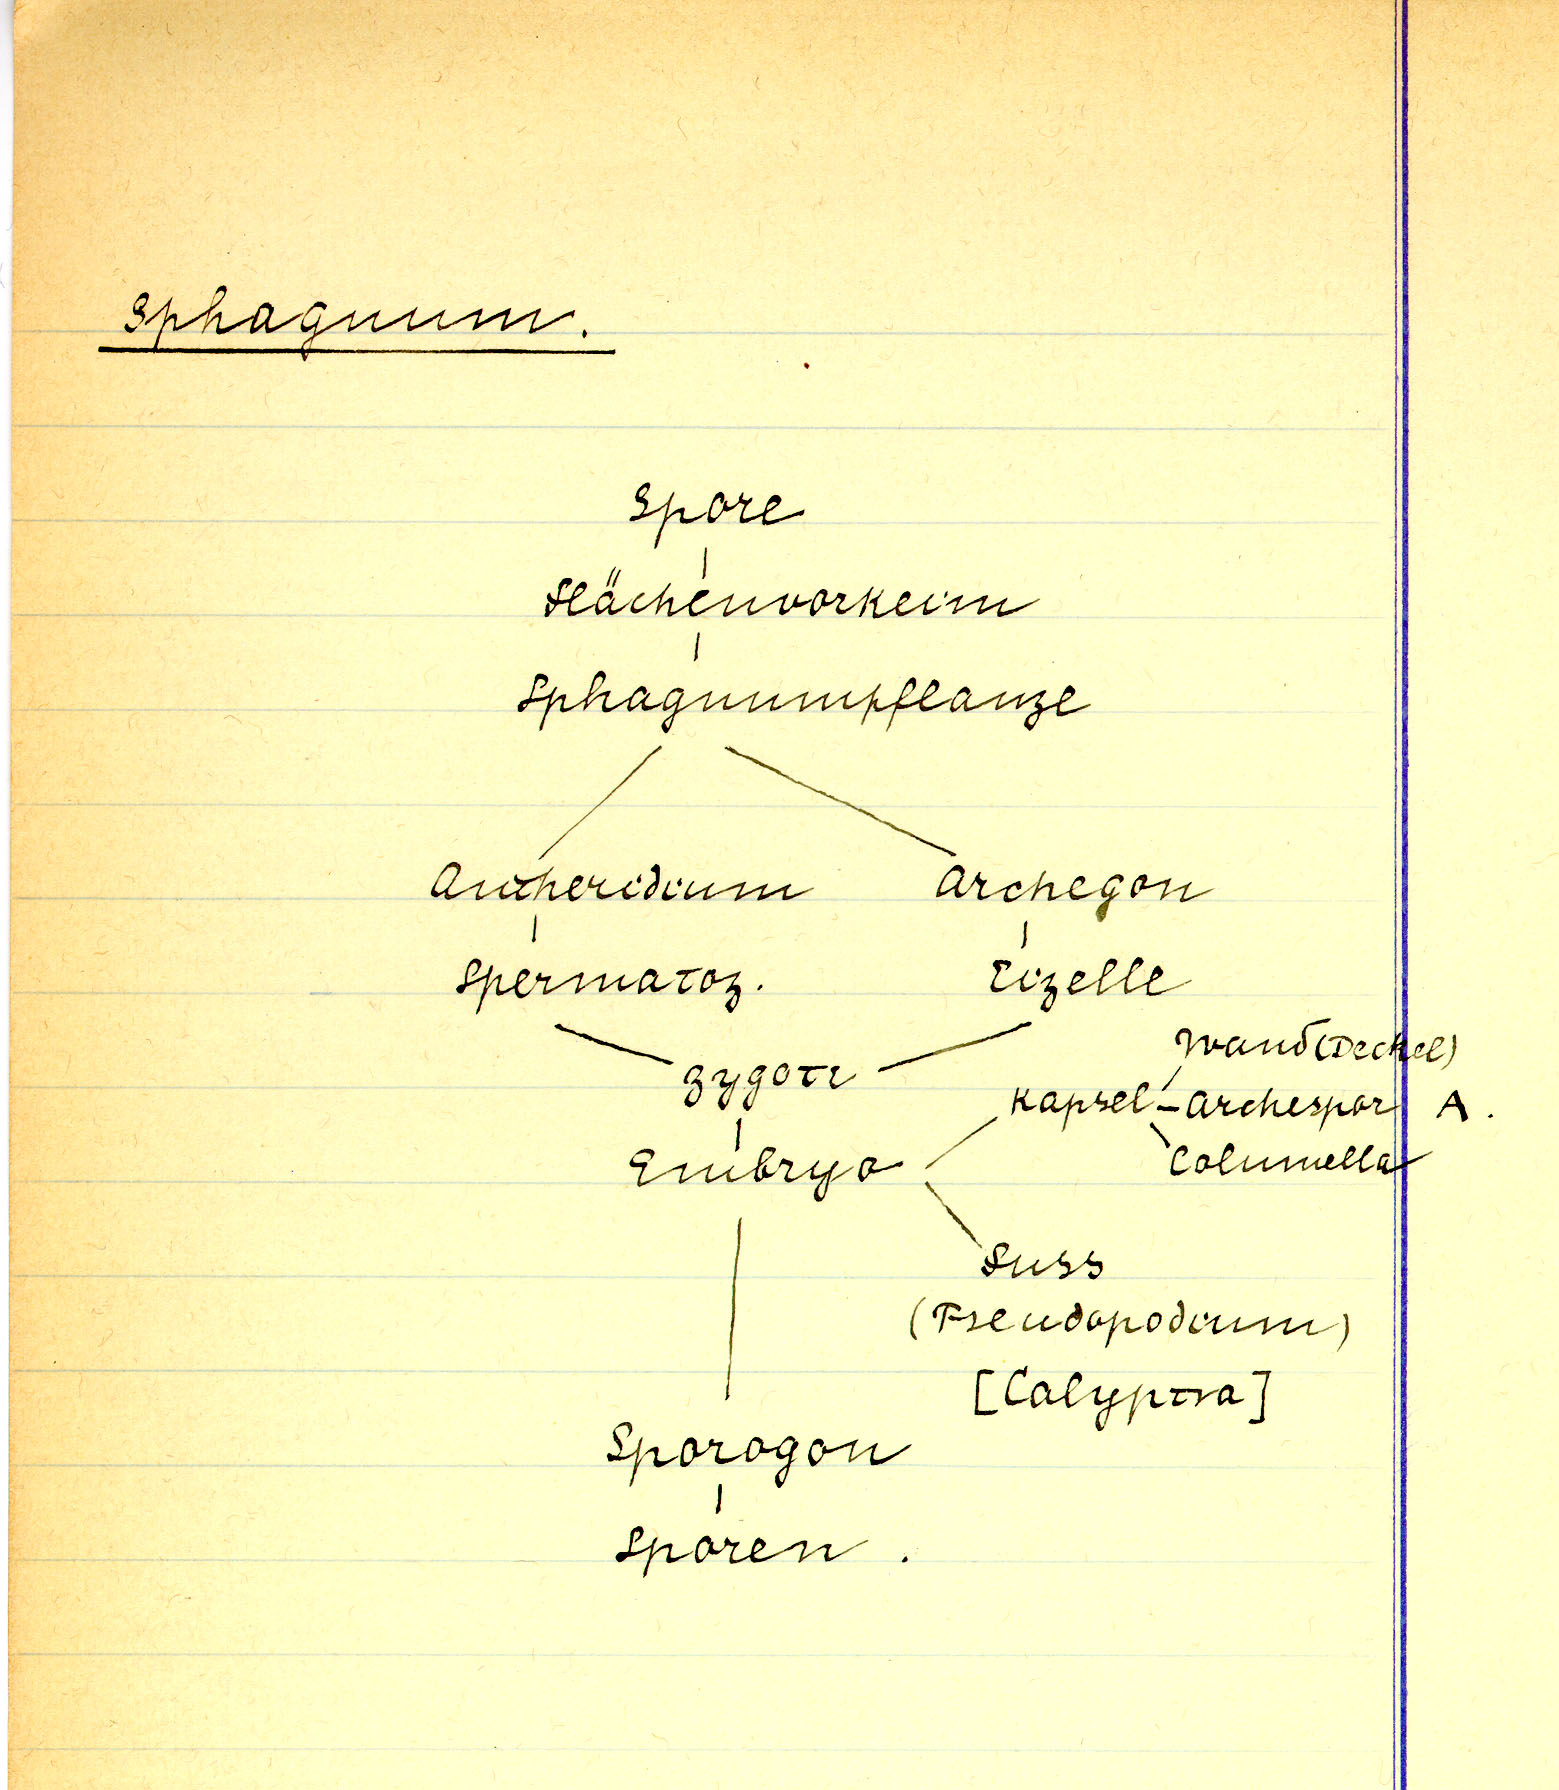 Sphagnum.
Spore
Flächenvorkeim
Sphagnumpflanze
Antheridium Archegon
Spermatoz. Eizelle
Wand (Deckel)
Zygote Kapsel - Archespor A.
Embryo Columella
Fuss
(Pseudopodium)
[Calyptra]
Sporogon
Sporen.